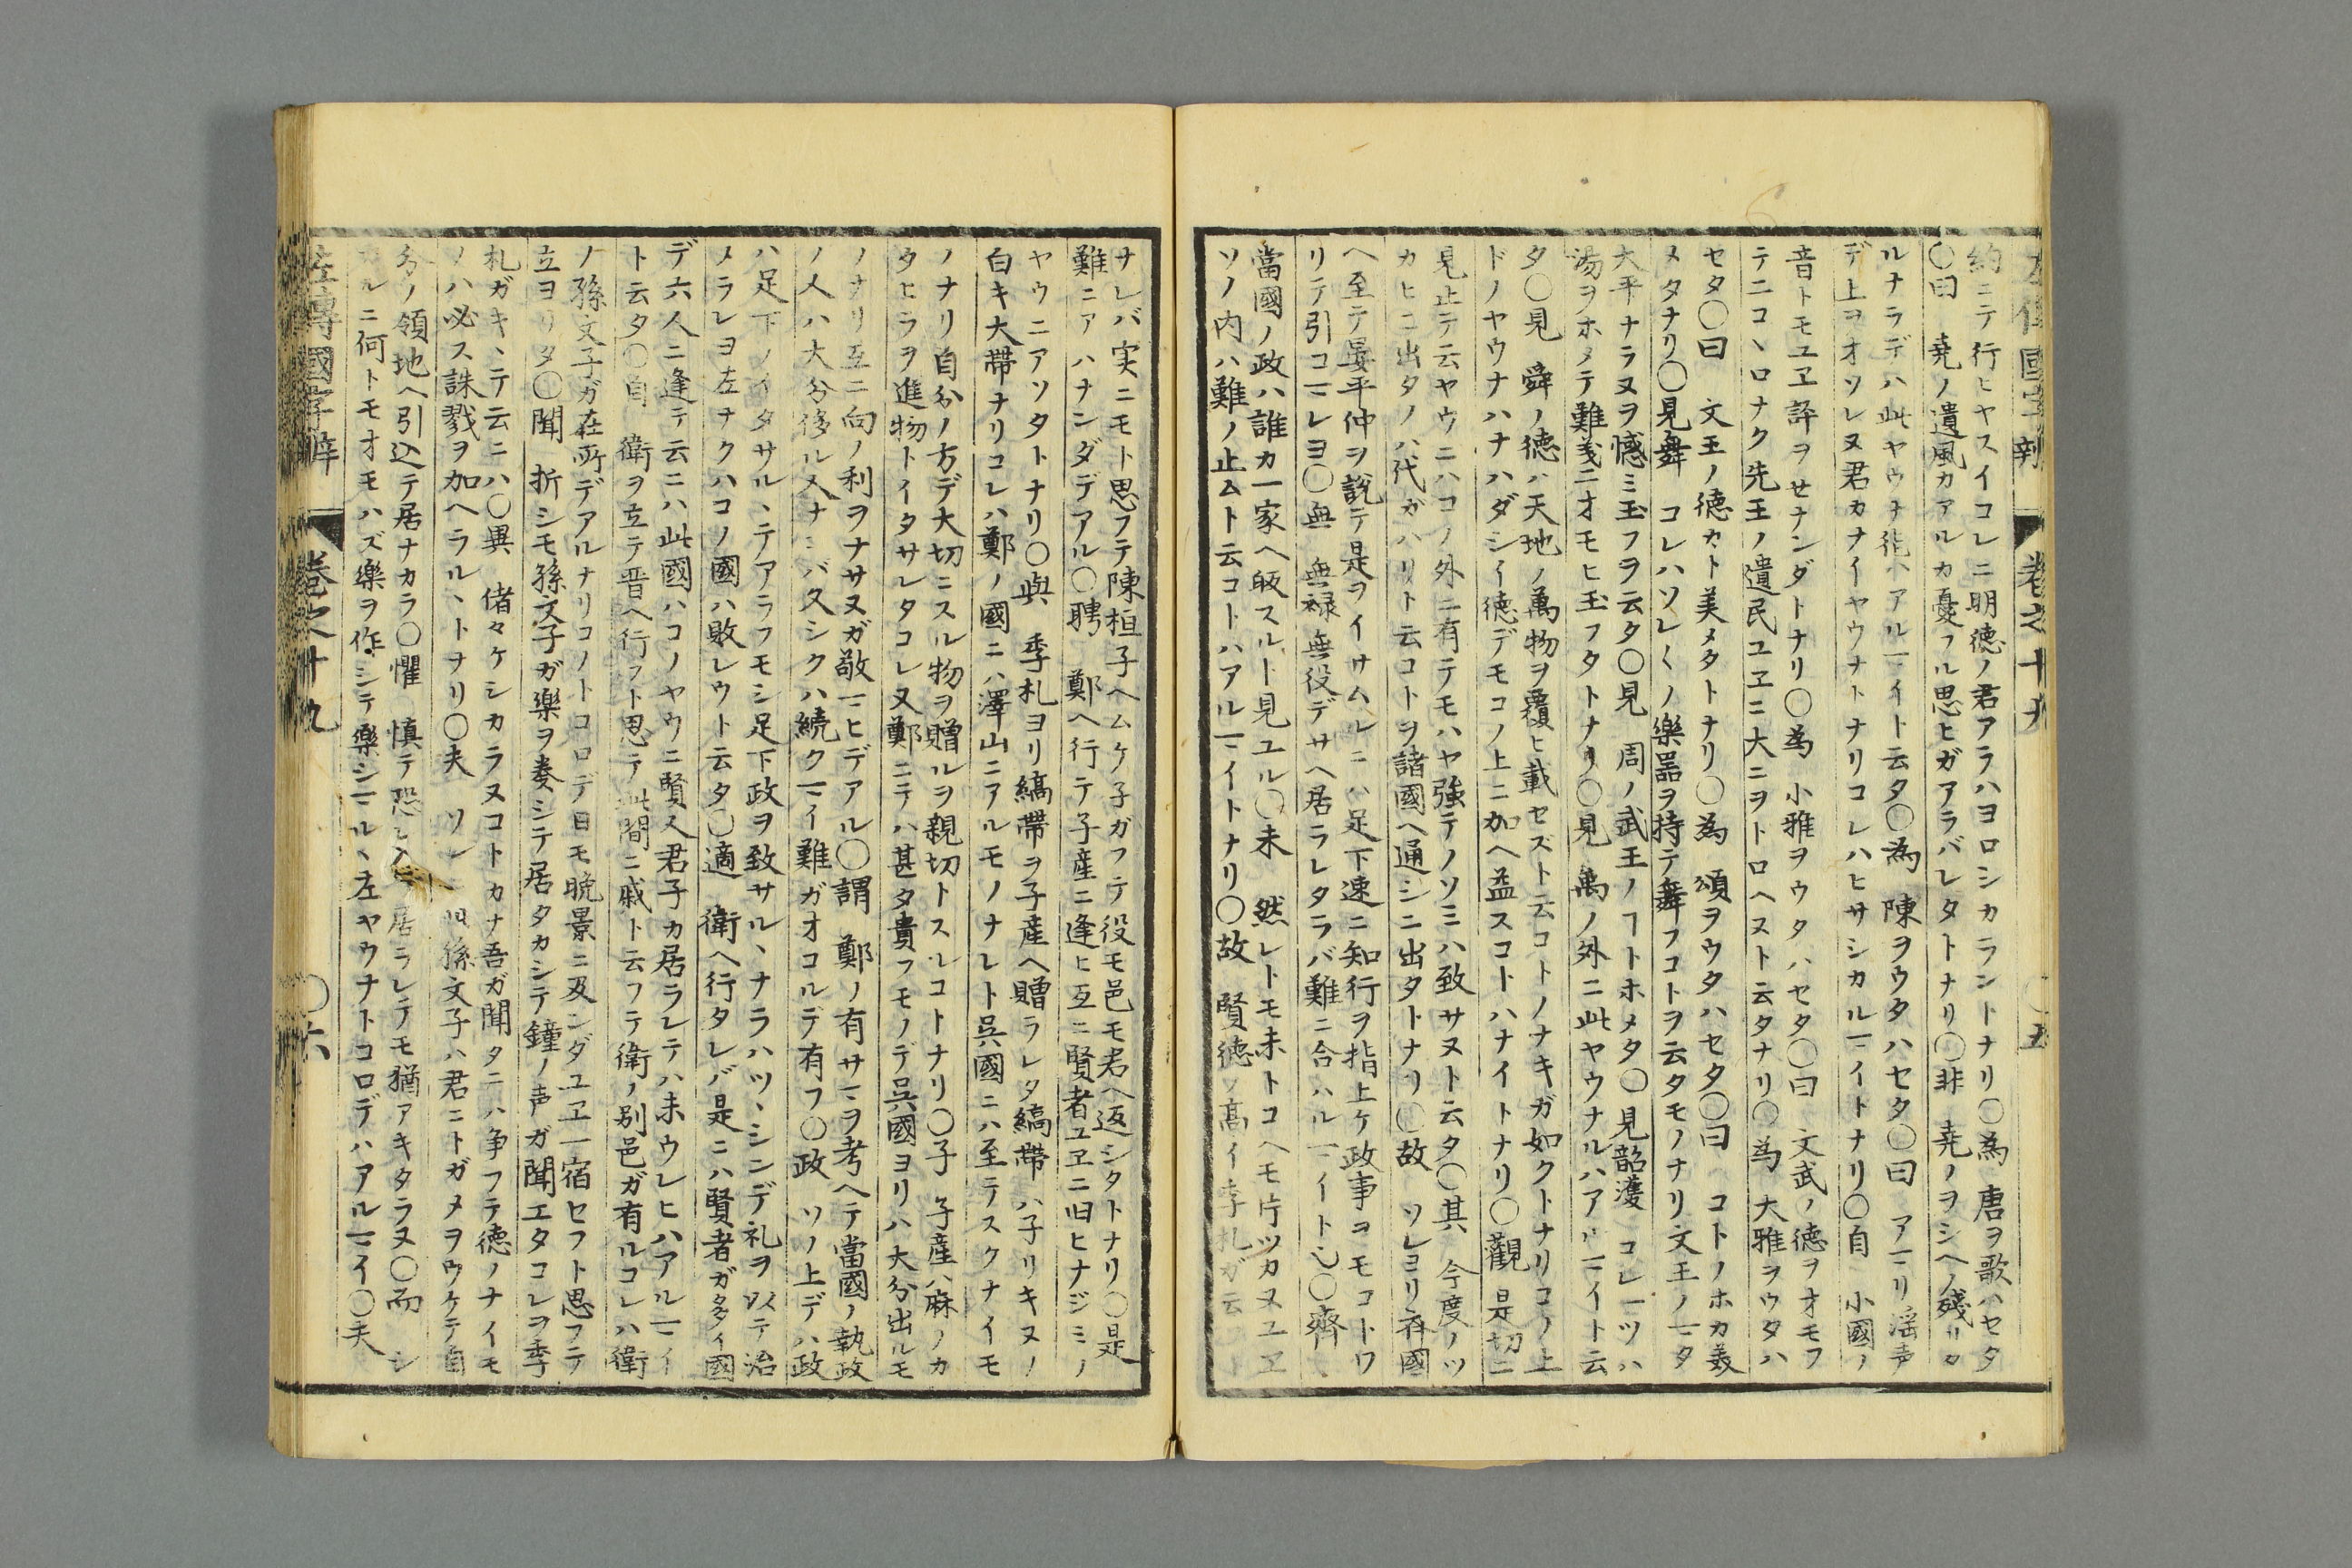 約ニテ行ヒヤスイコレニ明徳ノ君アラハヨロシカラントナリ〇為 唐ヲ歌ハセタ
〇曰 堯ノ遺風カアルカ憂フル思ヒガアラバレタトナリ〇非 堯ノヲシヘノ殘リタ
ルナラデハ此ヤウナ徳ハアルヿイト云タ〇為 陳ヲウタハセタ〇曰 アヿリ淫声
デ上ヲオソレヌ君カナイヤウナトナリコレハヒサシカルヿイトナリ〇自 小國ノ
音トモユヱ評ヲセナンダトナリ〇為 小雅ヲウタハセタ〇曰 文武ノ徳ヲオモフ
テニコヽロナク先王ノ遺民ユヱニ大ニヲトロヘヌト云タナリ〇為 大雅ヲウタハ
セタ〇曰 文王ノ徳カト美メタトナリ〇為 頌ヲウタハセタ〇曰 コトノホカ美
メタナリ〇見舞 コレハソレ〳〵ノ樂噐ヲ持テ舞フコトヲ云タモノナリ文王ノヿタ
大平ナラヌヲ憾ミ玉フヲ云タ〇見 周ノ武王ノヿトホメタ〇見韶濩 コレ一ツハ
湯ヲホメテ難義ニオモヒ玉フタトナリ〇見 萬ノ外ニ此ヤウナルハアルヿイト云
タ〇見 舜ノ徳ハ天地ノ萬物ヲ覆ヒ載セズト云コトノナキガ如クトナリコノ上
ドノヤウナハナハダシイ徳デモコノ上ニ加ヘ益スコトハナイトナリ〇觀 是切ニ
見止テ云ヤウニハコノ外ニ有テモハヤ強テノソミハ致サヌト云タ〇其 今度ノツ
カヒニ出タノハ代ガハリト云コトヲ諸國ヘ通シニ出タトナリ〇故 ソレヨリ斉國
ヘ至テ晏平仲ヲ說テ是ヲイサムルニハ足下速ニ知行ヲ指上ケ政事ヲモコトワ
リテ引コヿレヨ〇無 無禄無役デサヘ居ラレタラバ難ニ合ハルヿイト也〇齊
當國ノ政ハ誰カ一家ヘ皈スルト見ユル〇未 然レトモ未トコヘモ片ツカヌユヱ
ソノ内ハ難ノ止ムト云コトハアルヿイトナリ〇故 賢徳ノ髙イ季札ガ云
左傳國字辨 巻之十九 〇五
サレバ実ニモト思フテ陳桓子ヘムケ子ガフテ役モ邑モ君ヘ返シタトナリ〇是
難ニアハナンダデアル〇聘 鄭ヘ行テ子産ニ逢ヒ互ニ賢者ユヱニ旧ヒナジミノ
ヤウニアソタトナリ〇與 季札ヨリ縞帶ヲ子産ヘ贈ラレタ縞帶ハ子リキヌノ
白キ大帶ナリコレハ鄭ノ國ニハ澤山ニアルモノナレト呉國ニハ至テスクナイモ
ノナリ自分ノ方デ大切ニスル物ヲ贈ルヲ親切トスルコトナリ〇子 子産ハ麻ノカ
タヒラヲ進物トイタサレタコレ又鄭ニテハ甚タ貴フモノデ呉國ヨリハ大分出ルモ
ノナリ互ニ向ノ利ヲナサヌガ敬ヿヒデアル〇謂 鄭ノ有サヿヲ考ヘテ當國ノ執政
ノ人ハ大分侈ル人ナヿバ久シクハ続クヿイ難ガオコルデ有フ〇政 ソノ上デハ政
ハ足下ノイタサルヽテアラフモシ足下政ヲ致サルヽナラハツヽシンデ礼ヲ以テ治
メラレヨ左ナクハコノ國ハ敗レウト云タ〇適 衛ヘ行タレバ是ニハ賢者ガ多イ國
デ六人ニ逢テ云ニハ此國ハコノヤウニ賢人君子カ居ラレテハ未ウレヒハアルヿイ
ト云タ〇自 衛ヲ立テ晋ヘ行フト思テ此間ニ戚ト云フテ衛ノ别邑ガ有ルコレハ衛
ノ孫文子ガ在所デアルナリコノトコロデ日モ晩景ニ及ンダユヱ一宿セフト思フテ
立ヨリタ〇聞 折シモ孫文子ガ樂ヲ奏シテ居タカシテ鐘ノ声ガ聞エタコレヲ季
札ガキヽテ云ニハ〇異 偖々ケシカラヌコトカナ吾ガ聞タニハ争フテ徳ノナイモ
ノハ必ス誅戮ヲ加ヘラルヽトナリ〇夫 ソレニ 孫文子ハ君ニトガメヲウケテ自
分ノ領地ヘ引込テ居ナカラ〇懼 慎テ恐レ 居ラレテモ猶アキタラヌ〇而 シ
カルニ何トモオモハズ樂ヲ作シテ樂シヿルヽ左ヤウナトコロデハアルヿイ〇夫
左傳國字辨 巻之十九 〇六